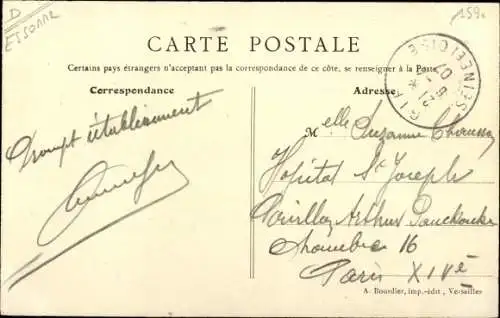 D
ESSONNE
159
CARTE POSTALE
Certains pays étrangers n'acceptant pas la correspondance de ce côté, se renseigner à la Poste
Correspondance
Adresse
Prompt établissement
Melle Suzanne
Hôpital St Joseph
Pavillon Arthur Panckoucke
Chambre 16
Paris XIVe
A. Bourdier, imp.-édit., Versailles